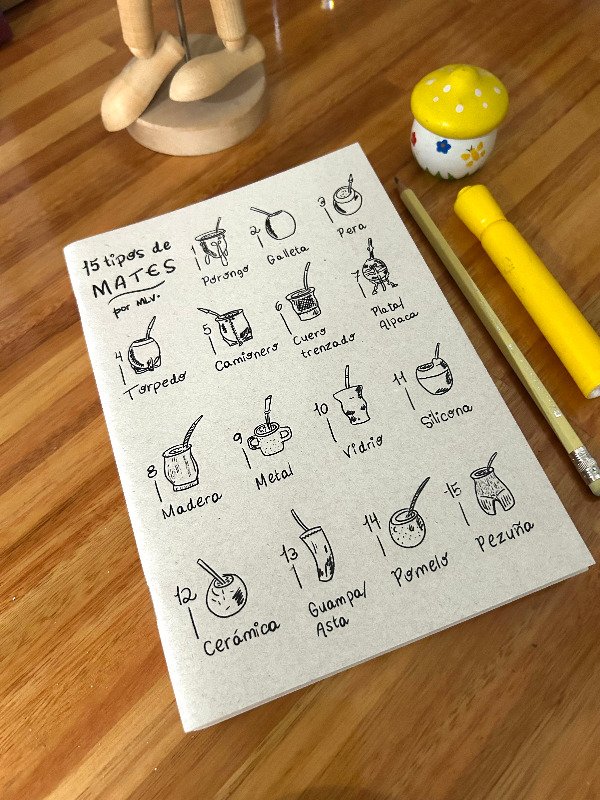 15 tipos de
MATES
por MLV.
1 Porongo
2 Galleta
3 Pera
4 Torpedo
5 Camionero
6 Cuero
trenzado
7 Plata/
Alpaca
8 Madera
9 Metal
10 Vidrio
11 Silicona
12 Cerámica
13 Guampa/
Asta
14 Pomelo
15 Pezuña